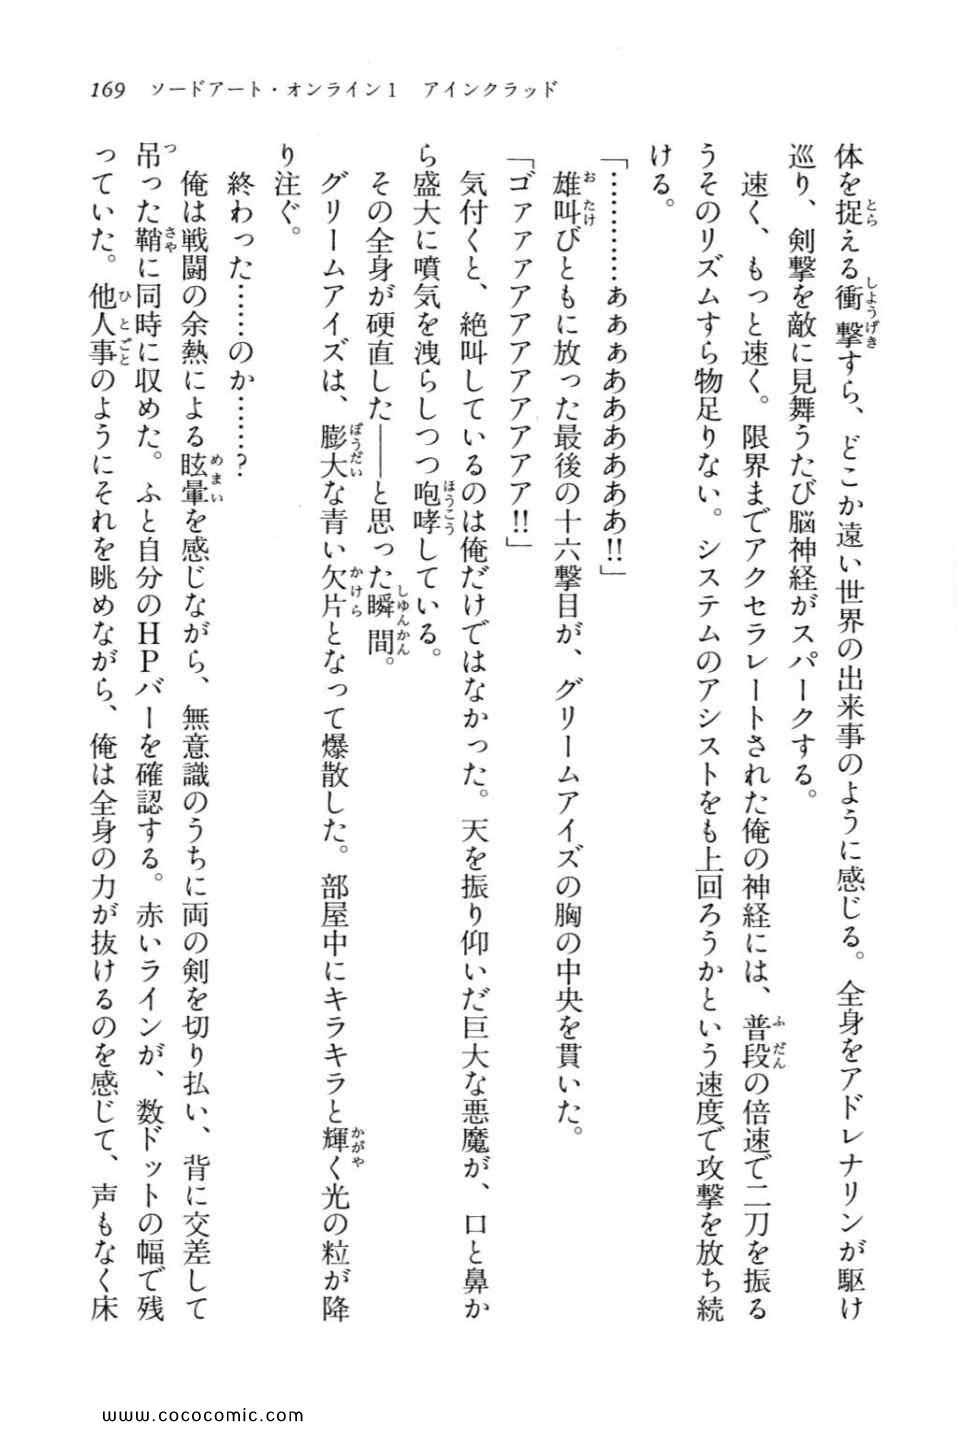 169 ソードアート・オンライン1 アインクラッド
体を捉える衝撃すら、どこか遠い世界の出来事のように感じる。全身をアドレナリンが駆け
巡り、剣撃を敵に見舞うたび脳神経がスパークする。
速く、もっと速く。限界までアクセラレートされた俺の神経には、普段の倍速で二刀を振る
うそのリズムすら物足りない。システムのアシストをも上回ろうかという速度で攻撃を放ち続
ける。
「…………ぁぁぁああああああ!!」
雄叫びともに放った最後の十六撃目が、グリームアイズの胸の中央を貫いた。
「ゴァァァアアアアアアアア!!」
気付くと、絶叫しているのは俺だけではなかった。天を振り仰いだ巨大な悪魔が、口と鼻か
ら盛大に噴気を洩らしつつ咆哮している。
その全身が硬直した――と思った瞬間。
グリームアイズは、膨大な青い欠片となって爆散した。部屋中にキラキラと輝く光の粒が降
り注ぐ。
終わった……のか……?
俺は戦闘の余熱による眩暈を感じながら、無意識のうちに両の剣を切り払い、背に交差して
吊った鞘に同時に収めた。ふと自分のHPバーを確認する。赤いラインが、数ドットの幅で残
っていた。他人事のようにそれを眺めながら、俺は全身の力が抜けるのを感じて、声もなく床
www.cococomic.com